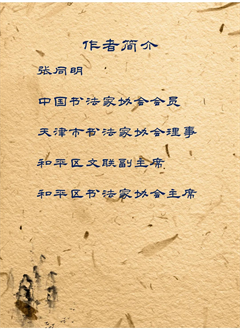 作者简介
张同明
中国书法家协会会员
天津市书法家协会理事
和平区文联副主席
和平区书法家协会主席